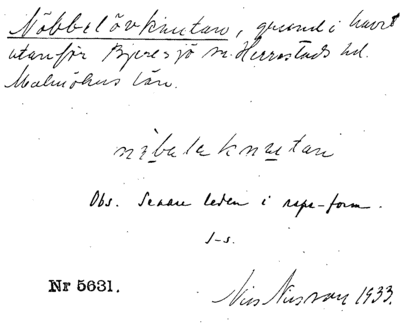 Nöbbelövknutan, grund i havet
utanför Bjeresjö sn. Herrestads hd.
Malmöhus län.
nibalaknutan
Obs. Senare leden i rspr-form.
J-s.
Nr 5631.
Nils Nilsson 1933.